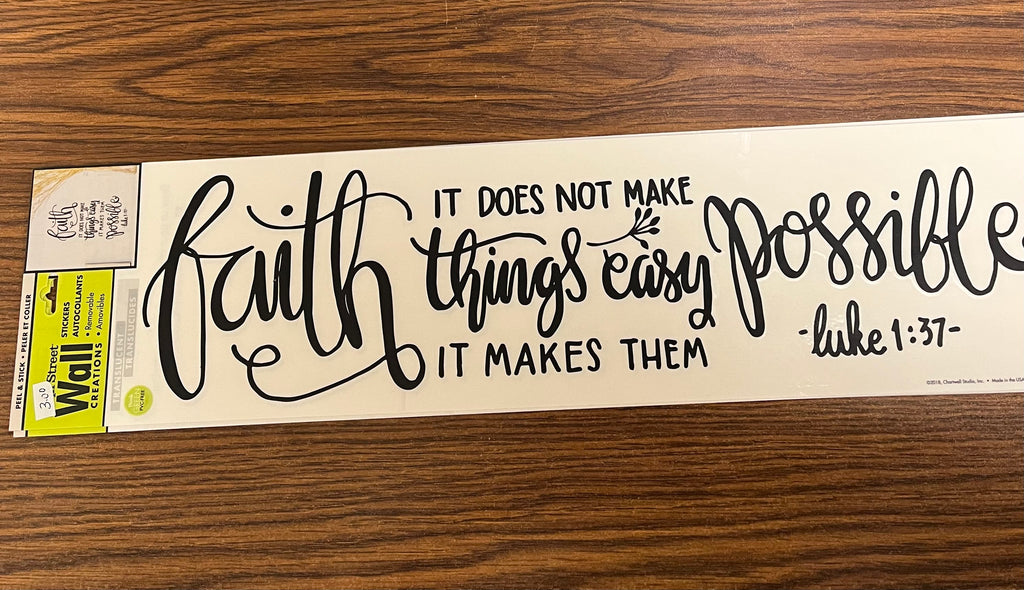 faith
IT DOES NOT MAKE
things easy
IT MAKES THEM
possible
-luke 1:37-
©2018, Chartwell Studio, Inc. • Made in the USA
PEEL & STICK • PELER ET COLLER
Street
Wall
CREATIONS
STICKERS
AUTOCOLLANTS
• Removable
• Amovibles
3.00
TRANSLUCENT
TRANSLUCIDES
think
GREEN
PVC-FREE
faith
IT DOES NOT MAKE
things easy
IT MAKES THEM
possible